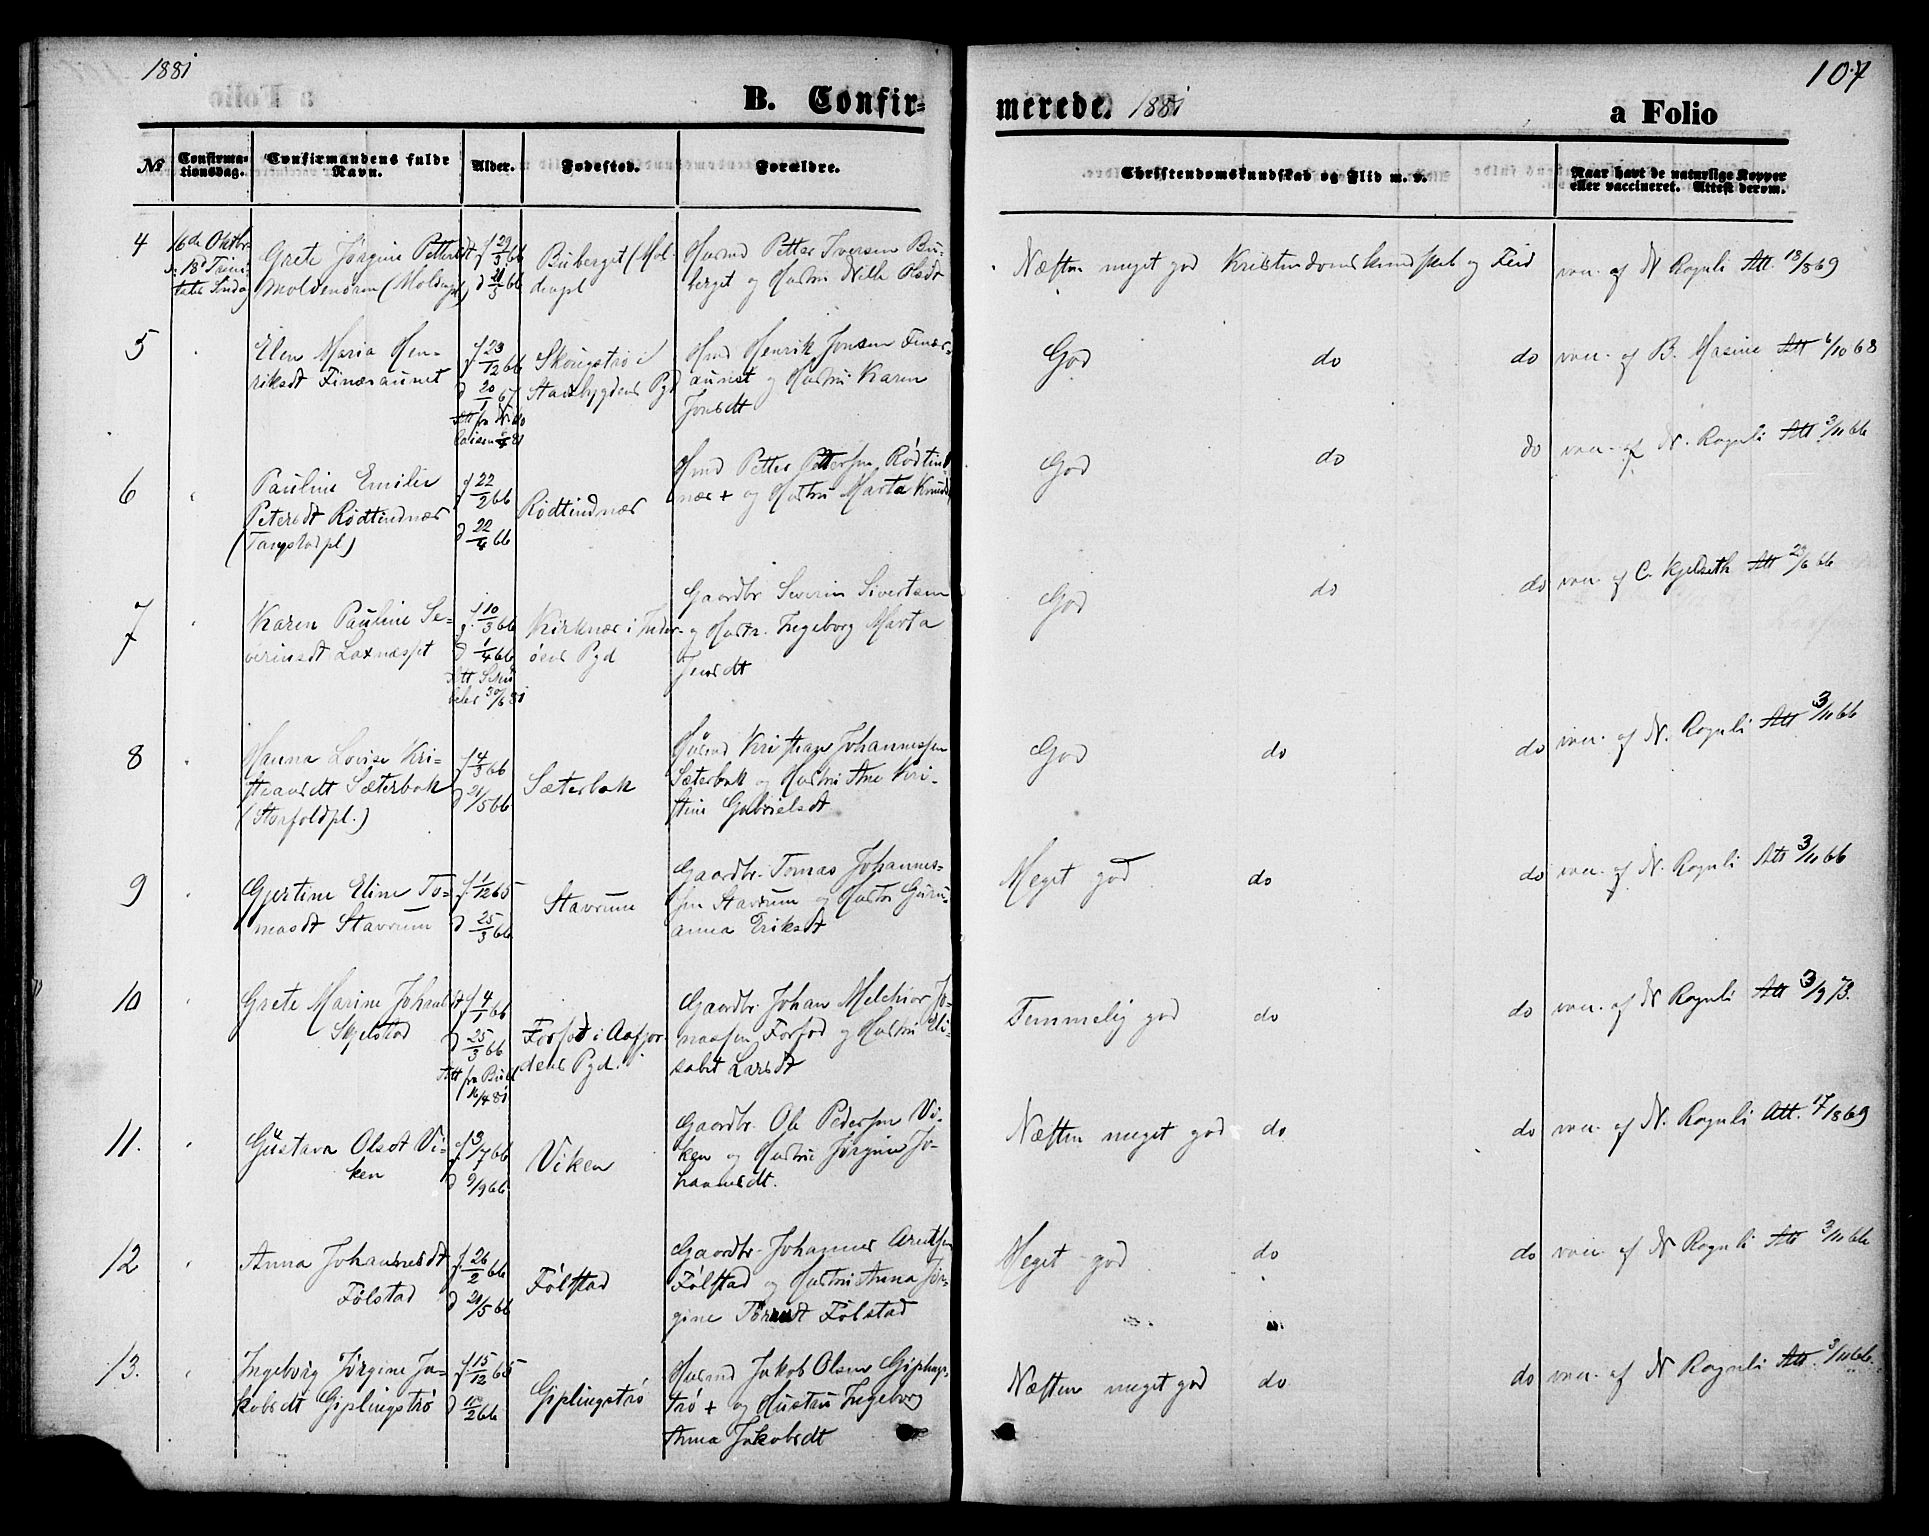 1881
107
B. Confir-
merede. 1881
a Folio
№
Confirma-
tionsdag.
Confirmandens fulde
Navn.
Alder.
Fødested.
Forældre.
Christendomskundskab og Flid m. v.
Naar havt de naturlige Kopper
eller vaccineret. Attest derom.
4
16de Oktbr
18d Trini-
tatis Søndag
Grete Jørgine Pettersdt
Moldenavn (Moldenpl)
f 29/3 66
d 21/5 66
Buberget (Mol-
denpl
Husmd Petter Iversen Bu-
berget og Hustru Nille Olsdt
Næsten meget god Kristendomskundskab og Flid
vac. af N Rognli Att. 18/8 69
5
Elen Maria Hen-
riksdt Finæsaunet
f 23/12 66
d 20/1 67
Skougstrø i
Stadsbygdens Pgd
Hmd Henrik Jonsen Finæs-
aunet og Hustru Karen
Jonsdt
God do do
vac. af B. Hasine Att 6/10 68
6
Pauline Emilie
Petersdt Rødtindnæs
(Tangstadpl)
f 22/2 66
d 22/4 66
Rødtindnæs
Hmd Petter Pettersen Rødtind
næs + og Hustru Marta Knudsdt
God do do
vac. af N. Rognli Att 3/11 66
7
Karen Pauline Se-
verinsdt Laxnesset
f. 10/3 66
d 1/4 66
Kirknæs i Inder-
øens Pgd
Gaardbr Severin Sivertsen
og Hustr. Ingeborg Marta
Jensdt
God do do
vac. af C. Kjelseth Att 29/6 66
8
Hanna Lovise Kri-
stiansdt Sæterbak
(Storfoldpl.)
f 4/3 66
d 21/5 66
Sæterbak
Husmd Kristian Johannessen
Sæterbak og Hustru Ane Kri-
stine Gabrielsdt
God do do
vac. af N. Rognli Att 3/11 66
9
Gjertine Eline To-
masdt Stavrum
f. 1/12 65
d 25/3 66
Stavrum
Gaardbr. Tomas Johannes-
sen Stavrum og Hustru Guru-
anna Eriksdt
Meget god do do
vac. af N. Rognli Att 3/11 66
10
Grete Marine Johansdt
Skjelstad
f 4/1 66
d 25/3 66
16/4 81
Forfod i Aafjor-
dens Pgd.
Gaardbr. Johan Melchior Jo-
nassen Forfod og Hustru Eli-
sabet Larsdt
Temmelig god do do
vac. af N Rognli Att 3/9 73.
11.
Gustava Olsdt Vi-
ken
f. 3/7 66
d 9/9 66
Viken
Gaardbr. Ole Pedersen Vi-
ken og Hustru Jørgine Jo-
hannesdt.
Næsten meget god do do
vac. af N. Rognli Att. 17/8 69
12
Anna Johannesdt
Følstad
f. 26/2 66
d 21/5 66
Følstad
Gaardbr. Johannes Arntsen
Følstad og Hustru Anna Jør-
gine Følstad
Meget god do do
vac. af N Rognli Att 3/11 66
13.
Ingeborg Jørgine Ja-
kobsdt Giplingstrø
f. 15/12 65
d 18/2 66
Giplingstrø
Husmd Jakob Olsen Giplings-
trø + og Hustru Ingeborg
Anna Jakobsdt
Næsten meget god do do
vac. af N Rognli Att. 3/11 66.